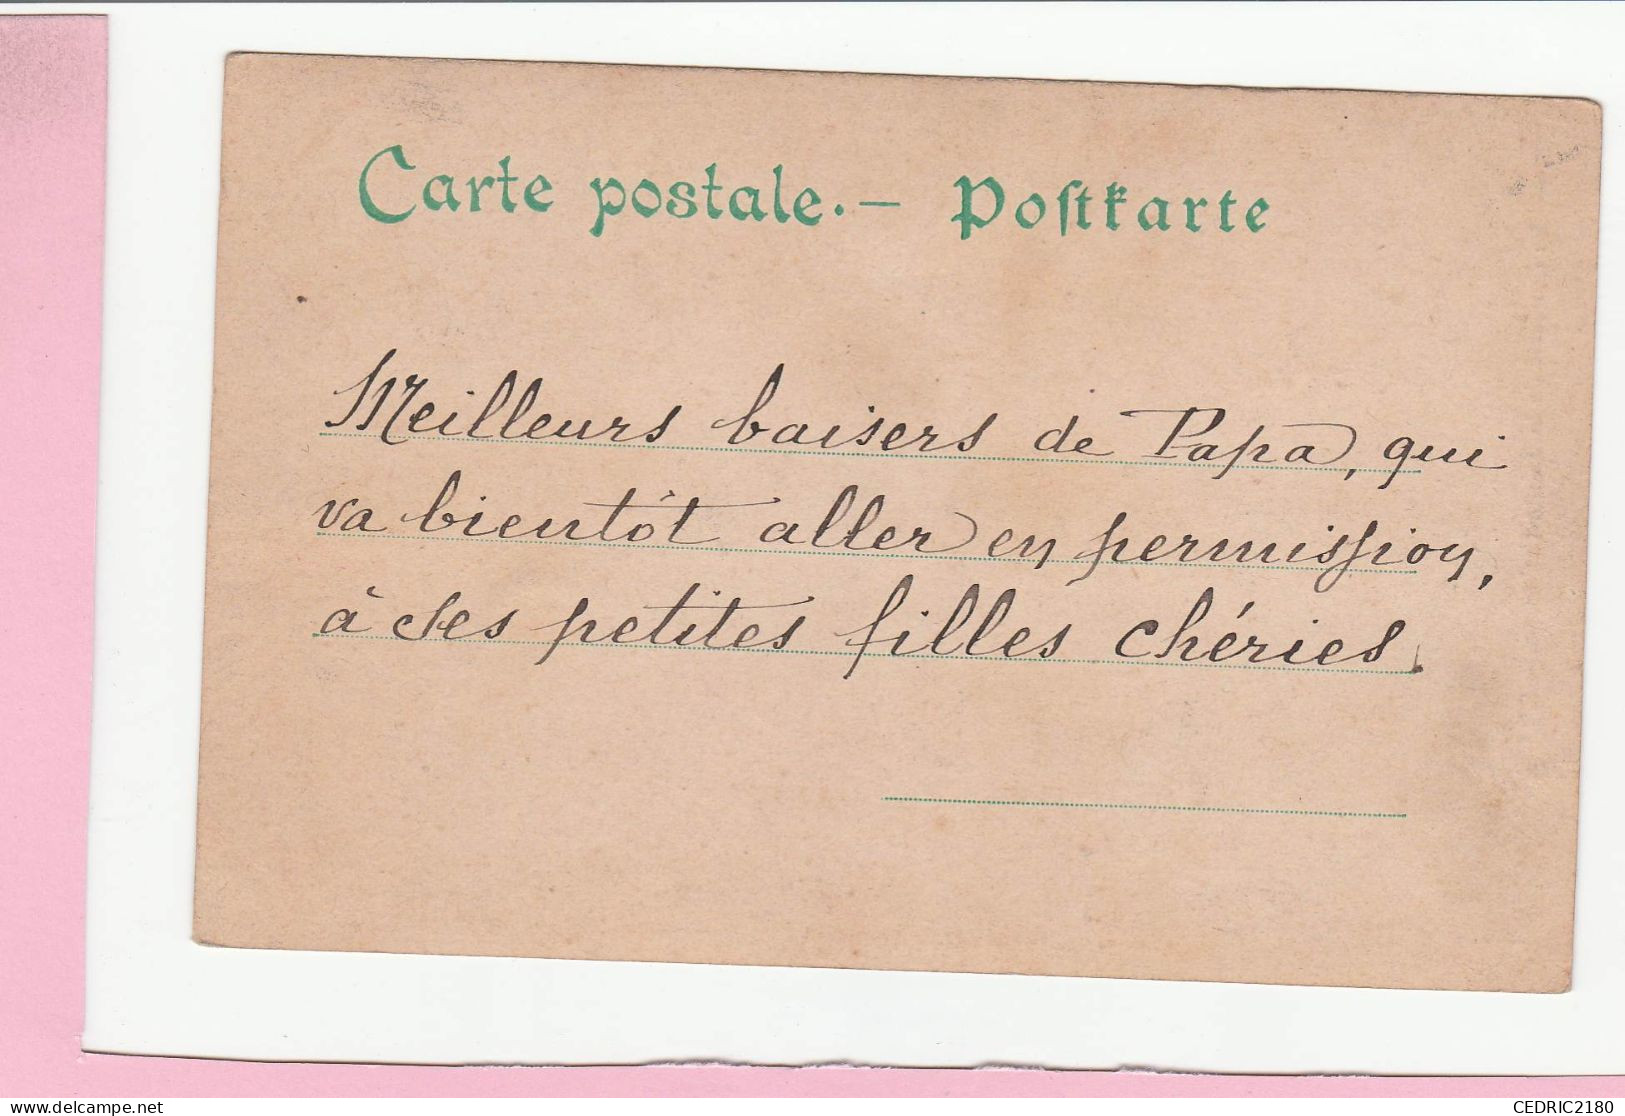 Carte postale. — Poſtkarte
Meilleurs baisers de Papa, qui
va bientôt aller en permission,
à ses petites filles chéries.
CEDRIC2180